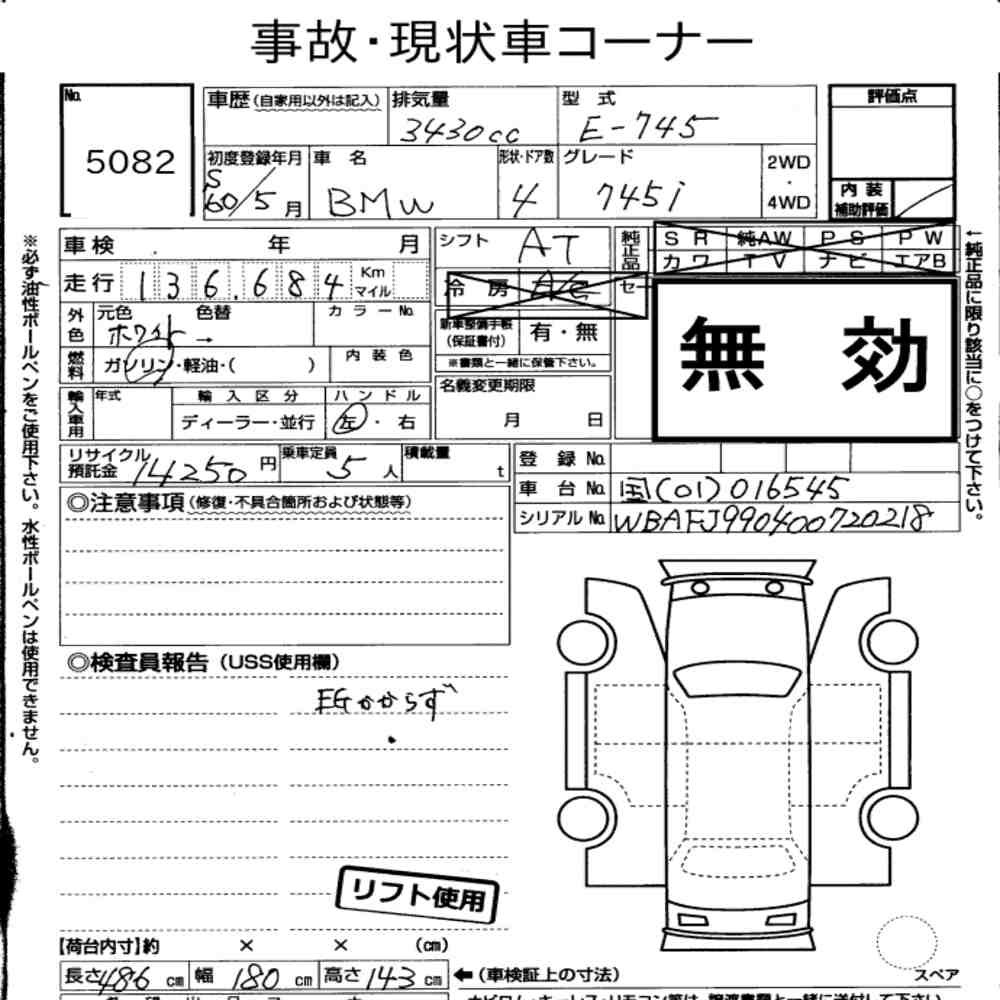 事故・現状車コーナー
No.
5082
車歴 (自家用以外は記入)
排気量
3430cc
型 式
E-745
評価点
初度登録年月
S
60/5 月
車 名
BMW
形状・ドア数
4
グレード
745i
2WD
・
4WD
内 装
補助評価
※必ず油性ボールペンをご使用下さい。水性ボールペンは使用できません。
車 検 年 月
走行 136.684 Km マイル
シフト AT
純正品
SR 純AW PS PW
カワ TV ナビ エアB
冷 房 A/C
セ
←純正品に限り該当に○をつけて下さい。
外色
元色
ホワイト →
色替
カラーNo.
新車整備手帳
(保証書付)
有・無
※書類と一緒に保管下さい。
無 効
燃料
ガソリン・軽油・( )
内 装 色
輸入車用
年式
輸 入 区 分
ディーラー・並行
ハ ン ド ル
左 ・ 右
名義変更期限
月 日
リサイクル
預託金
14250 円
乗車定員 5 人
積載量 t
登 録 No.
車 台 No. 国(01)016545
シリアル No. WBAFJ990400720218
◎注意事項 (修復・不具合箇所および状態等)
◎検査員報告 (USS使用欄)
EGかからず
リフト使用
【荷台内寸】約 × × (cm)
長さ 486 cm 幅 180 cm 高さ 143 cm
←(車検証上の寸法)
スペア